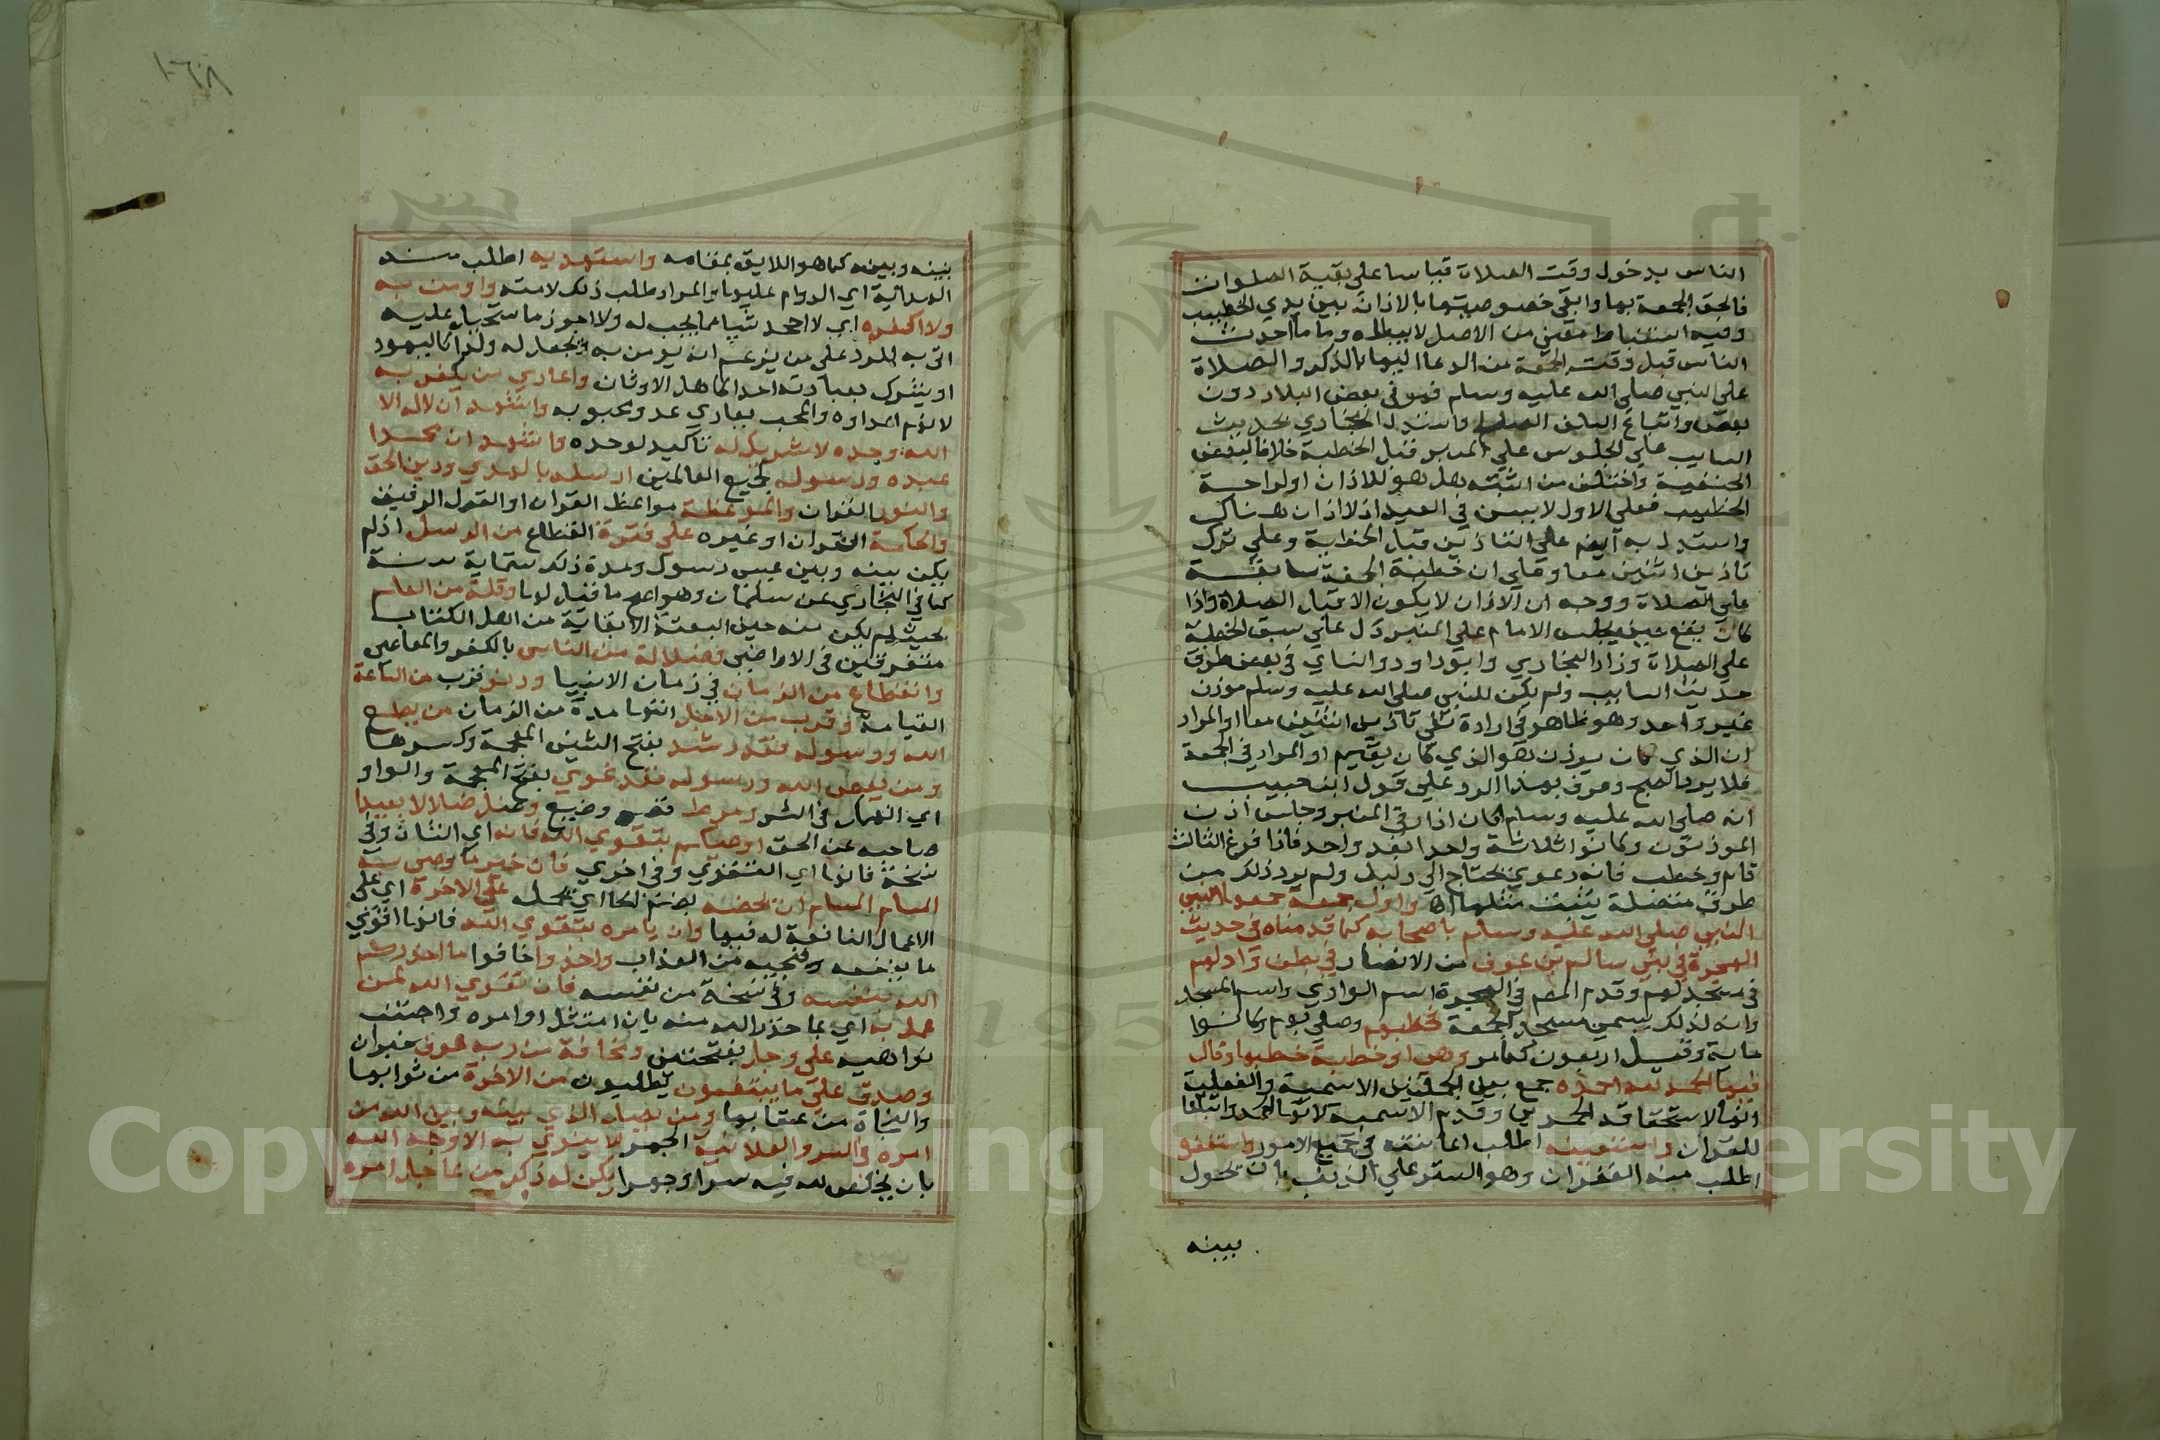 الناس بدخول وقت الصلاة قياسا على بقية الصلوات
فالحق الجمعة بها وابقى خصوصيتها بالاذان بين يدي الخطيب
وفيه استنباط معنى من الاصل لا يبطله وما ما احدث
الناس قبل وقت الجمعة من الدعا اليها بالذكر والصلاة
على النبي صلى الله عليه وسلم فهو في بعض البلاد دون
بعض واتباع السلف الصالح واستدل البخاري بحديث
السايب على الجلوس على المنبر قبل الخطبة خلافا لبعض
الحنفية واختلف من اثبته هل هو للاذان او لراحة
الخطيب فعلى الاول لا يسن في العيد اذ لا اذان هناك
واستدل به ايضا على التاذين قبل الخطبة وعلى ترك
تاذين اثنين معا وعلى ان خطبة الجمعة سابقة
على الصلاة ووجهه ان الاذان لا يكون الا قبل الصلاة واذا
كان يقع حين يجلس الامام على المنبر دل على سبق الخطبة
على الصلاة وزاد البخاري وابو داود والنساي في بعض طرق
حديث السايب ولم يكن للنبي صلى الله عليه وسلم موذن
غير واحد وهو ظاهر في ارادة نفي تاذين اثنين معا او المراد
ان الذي كان يوذن هو الذي كان يقيم او المراد في الجمعة
فلا يرد الصبح وعرف بهذا الرد على قول ابن حبيب
انه صلى الله عليه وسلم كان اذا رقى المنبر وجلس اذن
الموذنون وكانوا ثلاثة واحدا بعد واحد فاذا فرغ الثالث
قام وخطب فانه دعوى تحتاج الى دليل ولم يرد ذلك من
طرق متصلة يثبت مثلها اه واول جمعة جمعها النبي
النبي صلى الله عليه وسلم باصحابه كما قدمناه في حديث
الهجرة في بني سالم بن عوف من الانصار في بطن واد لهم
في مسجد لهم وقدم المص في الهجرة اسم الوادي واسم المسجد
وانه لذلك يسمى مسجد الجمعة فخطبهم وصلى بهم وكانوا
ماية وقيل اربعون كما مر وهي اول خطبة خطبها وقال
فيها الحمد لله احمده جمع بين الجملتين الاسمية والفعلية
للقران واستعينه اطلب اعانته في جميع الامور واستغفره
اطلب منه الغفران وهو الستر على الذنب بان يحول
بينه
١٠٦٨
بينه وبينه كما هو اللايق بمقامه واستهديه اطلب منه
الهداية اي الدوام عليها والمراد طلب ذلك لامته واومن به
ولا اكفره اي لا اجحد شيا مما يجب له ولا اجوز ما يستحيل عليه
اتى به للرد على من يزعم انه يومن به ويجعل له ولدا كاليهود
او يشرك بعبادته احدا كاهل الاوثان واعادي من يكفر به
لانهم اعداوه والمحب يعادي عدو محبوبه واشهد ان لا اله الا
الله وحده لا شريك له تاكيد لوحده واشهد ان محمدا
عبده ورسوله لجميع العالمين ارسله بالهدى ودين الحق
والنور القران والموعظة مواعظ القران او القول الرقيق
والحكمة القران او غيره على فترة انقطاع من الرسل اذ لم
يكن بينه وبين عيسى رسول ومدة ذلك ستماية سنة
كما في البخاري عن سلمان وهو اصح ما قيل لها وقلة من العلم
بحيث لم يكن منه حين البعثة الا بقاية من اهل الكتاب
متفرقين في الاراضي وضلالة من الناس بالكفر والمعاصي
وانقطاع من الزمان في زمان الانبيا ودنو قرب من الساعة
القيامة وقرب من الاجل انتها مدة من الزمان من يطع
الله ورسوله فقد رشد بفتح الشين المعجمة وكسرها
ومن يعص الله ورسوله فقد غوى بفتح المعجمة والواو
اي انهمك في الشر وفرط قصر وضيع وضل ضلالا بعيدا
صاحبه عن الحق اوصيكم بتقوى الله فانه اي الشان وفي
نسخة فانها اي التقوى وفي اخرى فان خير ما وصى به
المسلم المسلم ان يحضه بضم الحا اي يحمله على الاخرة اي على
الاعمال النافعة له فيها وان يامره بتقوى الله فانها اقوى
ما ينفعه وينجيه من العذاب واحذروا خافوا ما حذركم
الله بنفسه وفي نسخة من نفسه فان تقوى الله لمن
عمل به اي بما حذر الله منه بان امتثل اوامره واجتنب
نواهيه على وجل بفتحتين ومخافة من ربه عون خبر ان
وصدق على ما يبتغون يطلبون من الاخرة من ثوابها
والنجاة من عقابها ومن يصل الذي بينه وبين الله من
امره في السر والعلانية الجهر لا ينوي به الا وجه الله
بان يخلص لله فيه سرا وجهرا يكن له ذكرا من عاجل امره